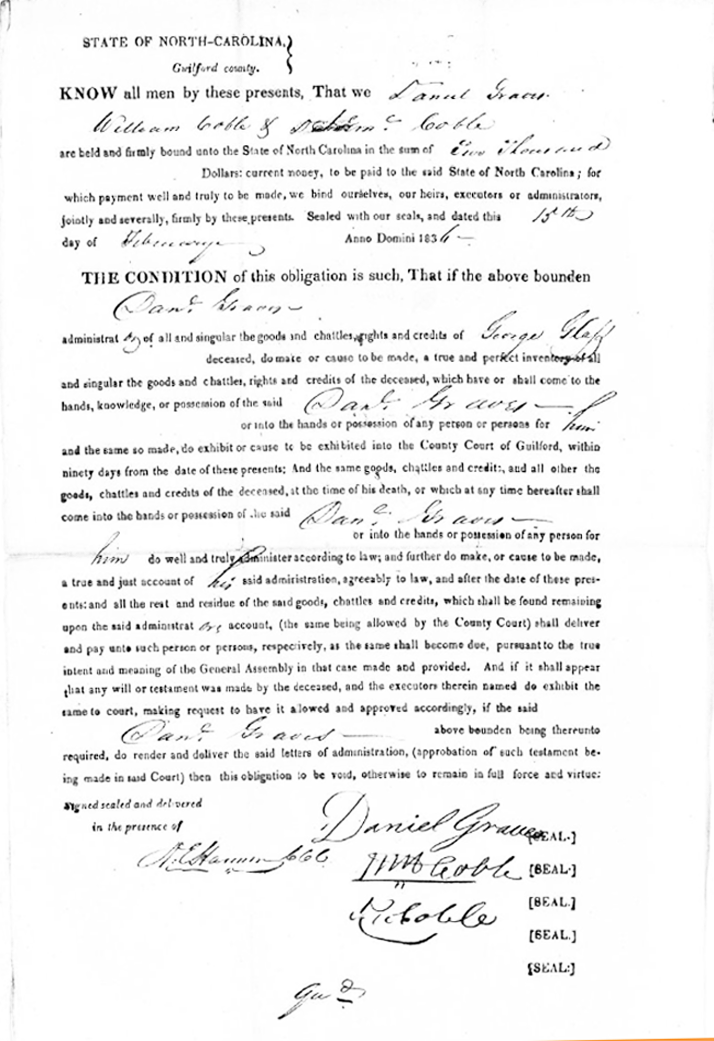 STATE OF NORTH-CAROLINA,
Guilford county.
KNOW all men by these presents, That we Daniel Graves
William Coble & Coble
are held and firmly bound unto the State of North Carolina in the sum of Two Thousand
Dollars: current money, to be paid to the said State of North Carolina; for
which payment well and truly to be made, we bind ourselves, our heirs, executors or administrators,
jointly and severally, firmly by these presents. Sealed with our seals, and dated this 15th
day of February Anno Domini 1836
THE CONDITION of this obligation is such, That if the above bounden
Danl. Graves
administrator of all and singular the goods and chattles, rights and credits of George Glass
deceased, do make or cause to be made, a true and perfect inventory of all
and singular the goods and chattles, rights and credits of the deceased, which have or shall come to the
hands, knowledge, or possession of the said Danl. Graves
or into the hands or possession of any person or persons for him
and the same so made, do exhibit or cause to be exhibited into the County Court of Guilford, within
ninety days from the date of these presents; And the same goods, chattles and credits, and all other the
goods, chattles and credits of the deceased, at the time of his death, or which at any time hereafter shall
come into the hands or possession of the said Danl. Graves
or into the hands or possession of any person for
him do well and truly administer according to law; and further do make, or cause to be made,
a true and just account of his said administration, agreeably to law, and after the date of these pres-
ents: and all the rest and residue of the said goods, chattles and credits, which shall be found remaining
upon the said administrators account, (the same being allowed by the County Court) shall deliver
and pay unto such person or persons, respectively, as the same shall become due, pursuant to the true
intent and meaning of the General Assembly in that case made and provided. And if it shall appear
that any will or testament was made by the deceased, and the executors therein named do exhibit the
same to court, making request to have it allowed and approved accordingly, if the said
Danl. Graves above bounden being thereunto
required, do render and deliver the said letters of administration, (approbation of such testament be-
ing made in said Court) then this obligation to be void, otherwise to remain in full force and virtue:
Signed sealed and delivered
in the presence of
Daniel Graves [SEAL.]
Wm Coble [SEAL.]
Coble [SEAL.]
[SEAL.]
[SEAL:]